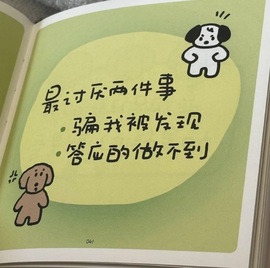 最讨厌两件事
·骗我被发现
·答应的做不到